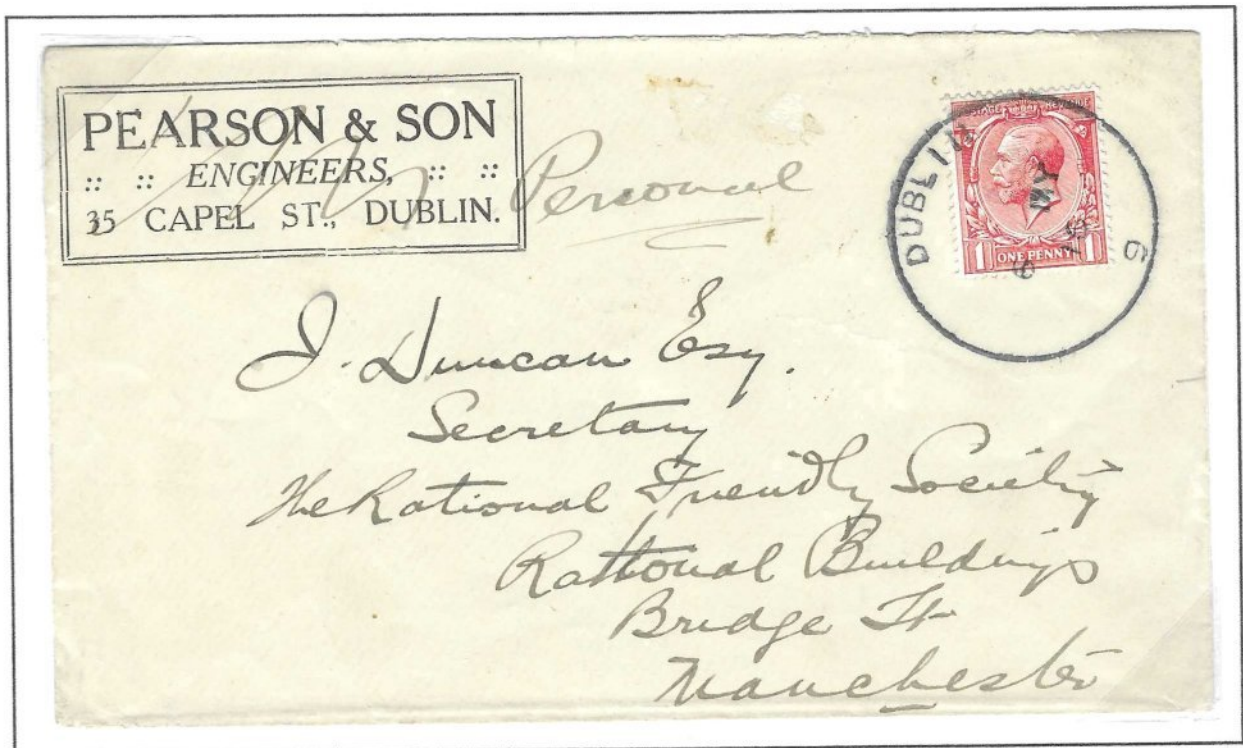 PEARSON & SON
:: :: ENGINEERS, :: ::
35 CAPEL ST., DUBLIN.
Personal
POSTAGE REVENUE
1 ONE PENNY 1
DUBLIN
MY
6
J. Duncan Esq.
Secretary
The Rational Friendly Society
Rational Buildings
Bridge St
Manchester